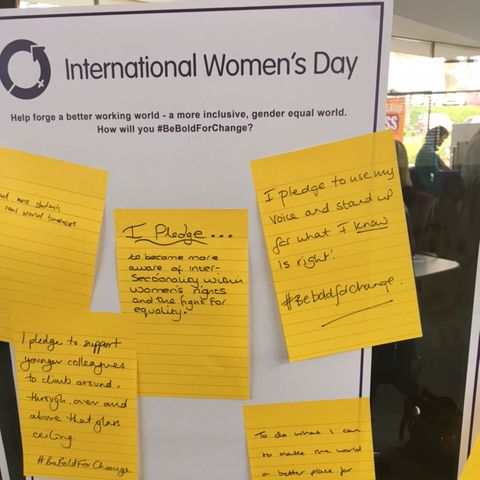 International Women's Day
Help forge a better working world - a more inclusive, gender equal world.
How will you #BeBoldForChange?
more students
real world business.
I Pledge...
to become more
aware of inter-
sectionality within
women's rights
and the fight for
equality.
I pledge to use my
voice and stand up
for what I know
is right!
#Beboldforchange.
I pledge to support
younger colleagues
to climb around,
through, over and
above that glass
ceiling.
#BeBoldForChange
To do what I can
to make the world
a better place for